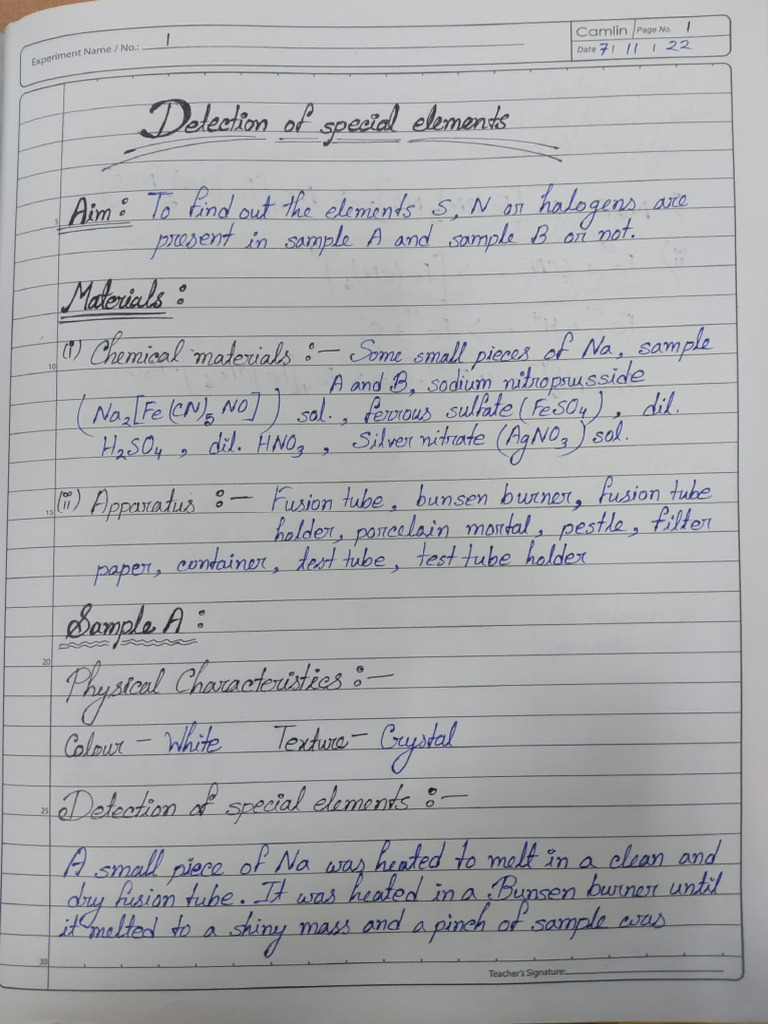 Experiment Name / No.: 1
Camlin Page No. 1
Date 7 | 11 | 22
Detection of special elements
5 Aim : To find out the elements S, N or halogens are
present in sample A and sample B or not.
Materials :
10 (i) Chemical materials :— Some small pieces of Na, sample
A and B, sodium nitroprusside
(Na₂[Fe(CN)₅NO]) sol., ferrous sulfate (FeSO₄), dil.
H₂SO₄, dil. HNO₃, Silver nitrate (AgNO₃) sol.
15 (ii) Apparatus :— Fusion tube, bunsen burner, fusion tube
holder, porcelain mortal, pestle, filter
paper, container, test tube, test tube holder
Sample A :
20
Physical Characteristics :—
Colour — White Texture — Crystal
25 Detection of special elements :—
A small piece of Na was heated to melt in a clean and
dry fusion tube. It was heated in a Bunsen burner until
it melted to a shiny mass and a pinch of sample was
30
Teacher's Signature: